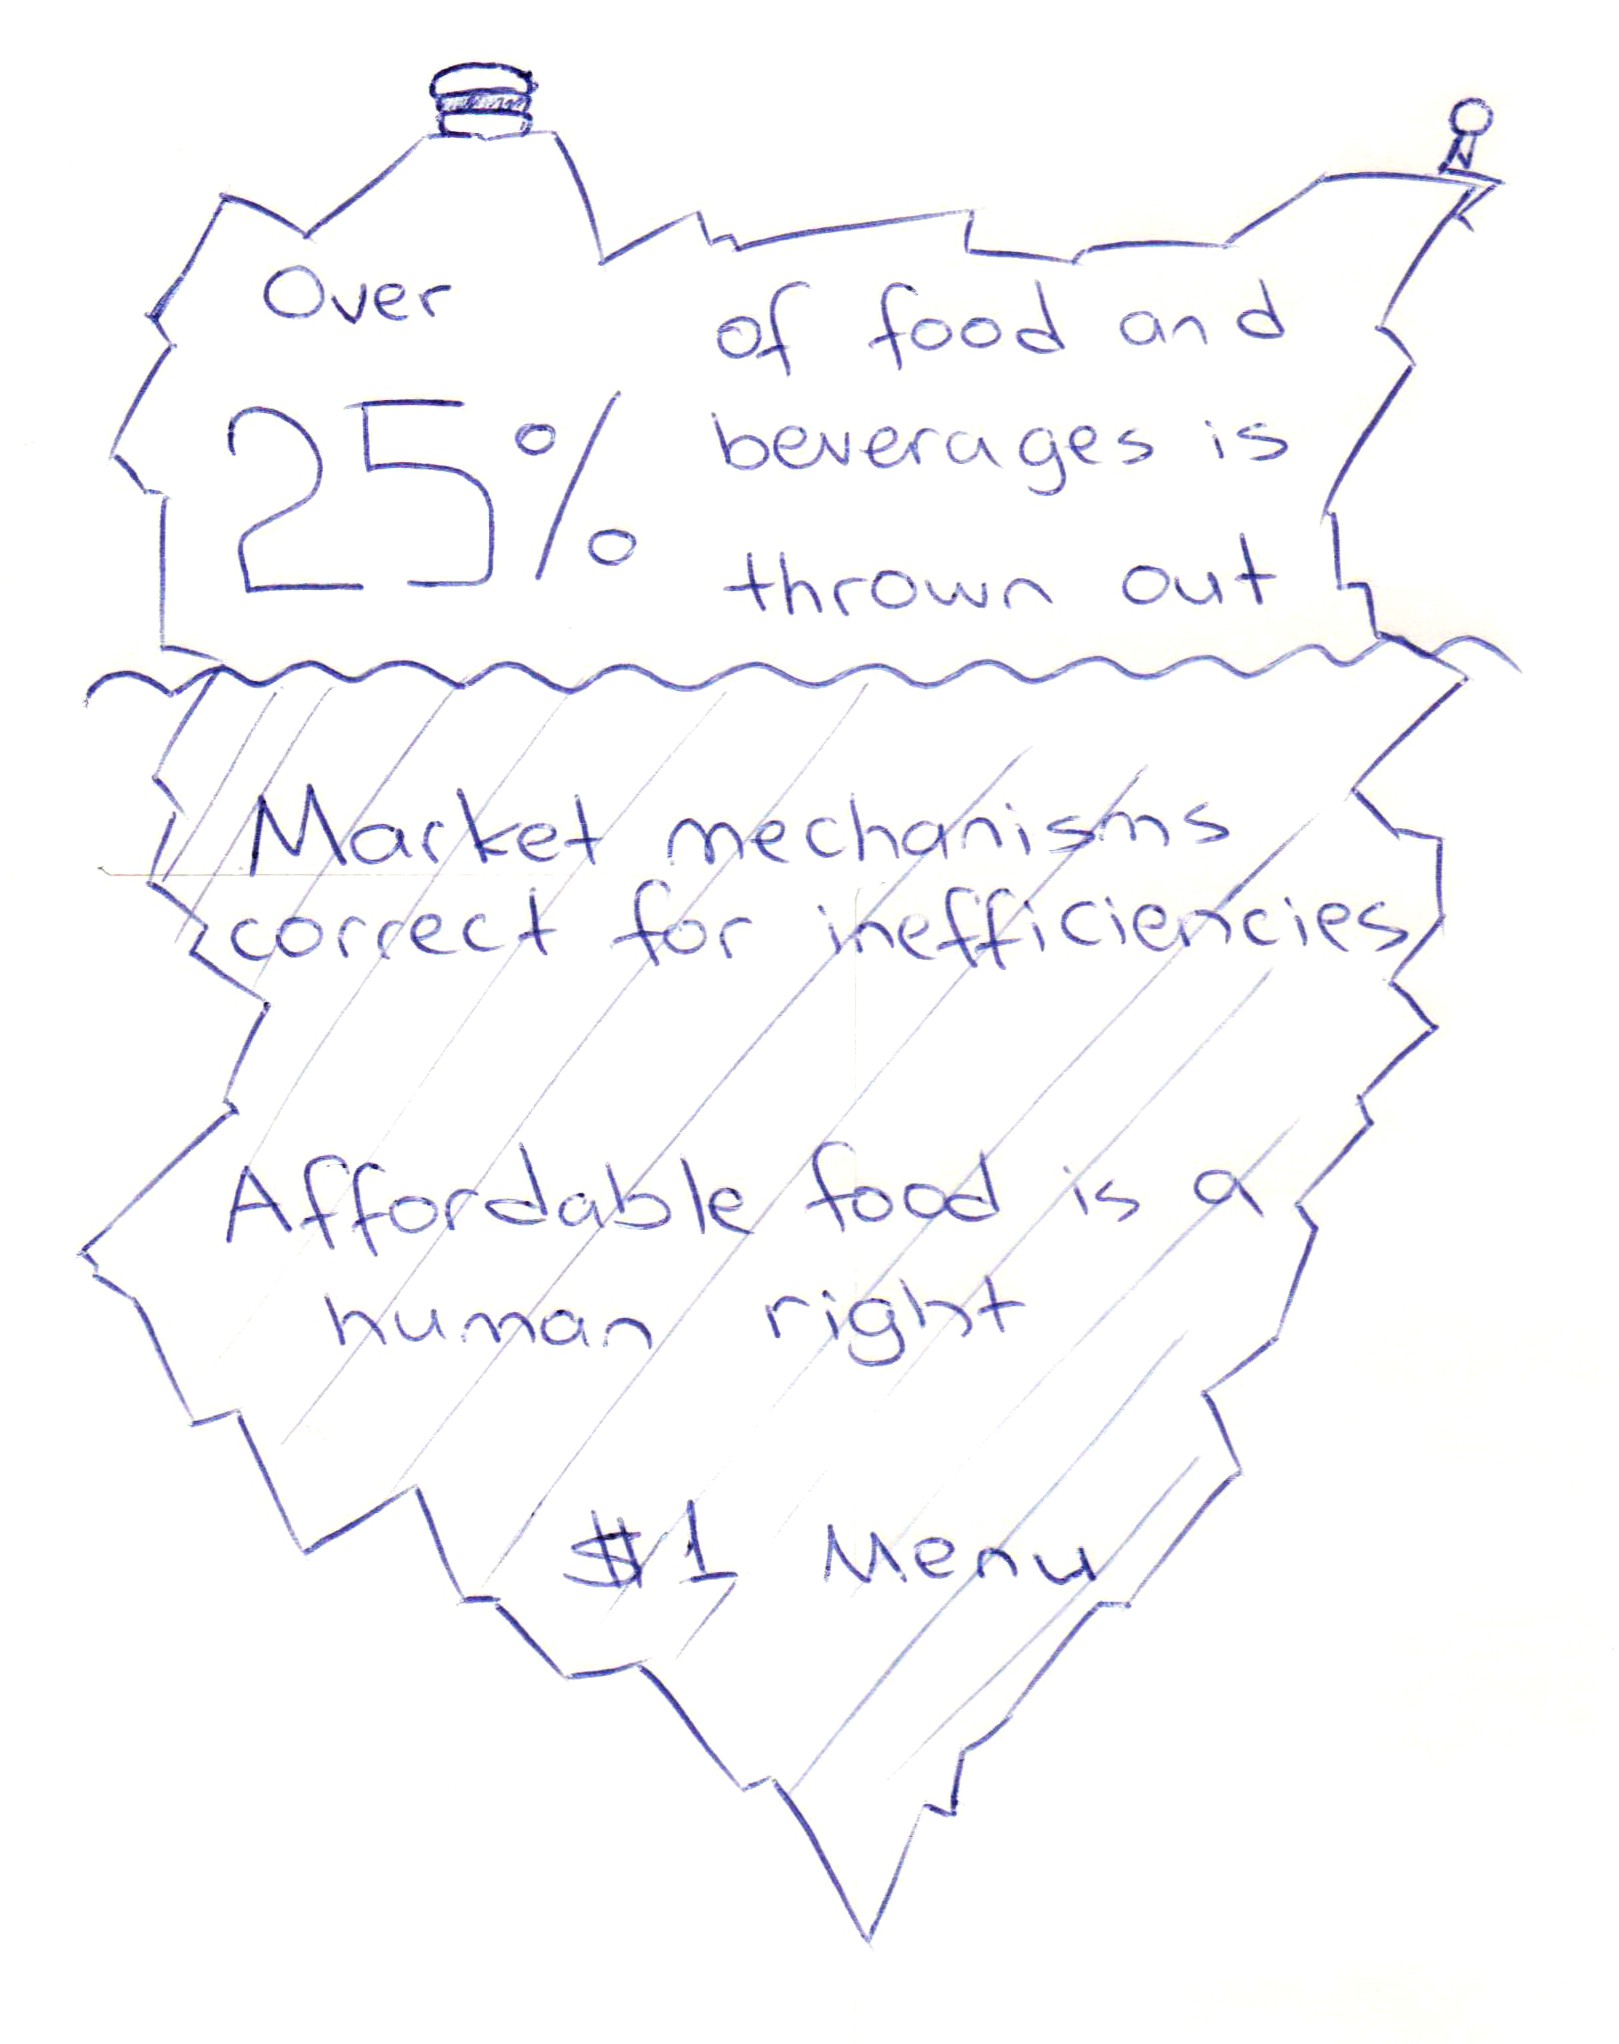 Over
25%
of food and
beverages is
thrown out
Market mechanisms
correct for inefficiencies
Affordable food is a
human right
$1 Menu